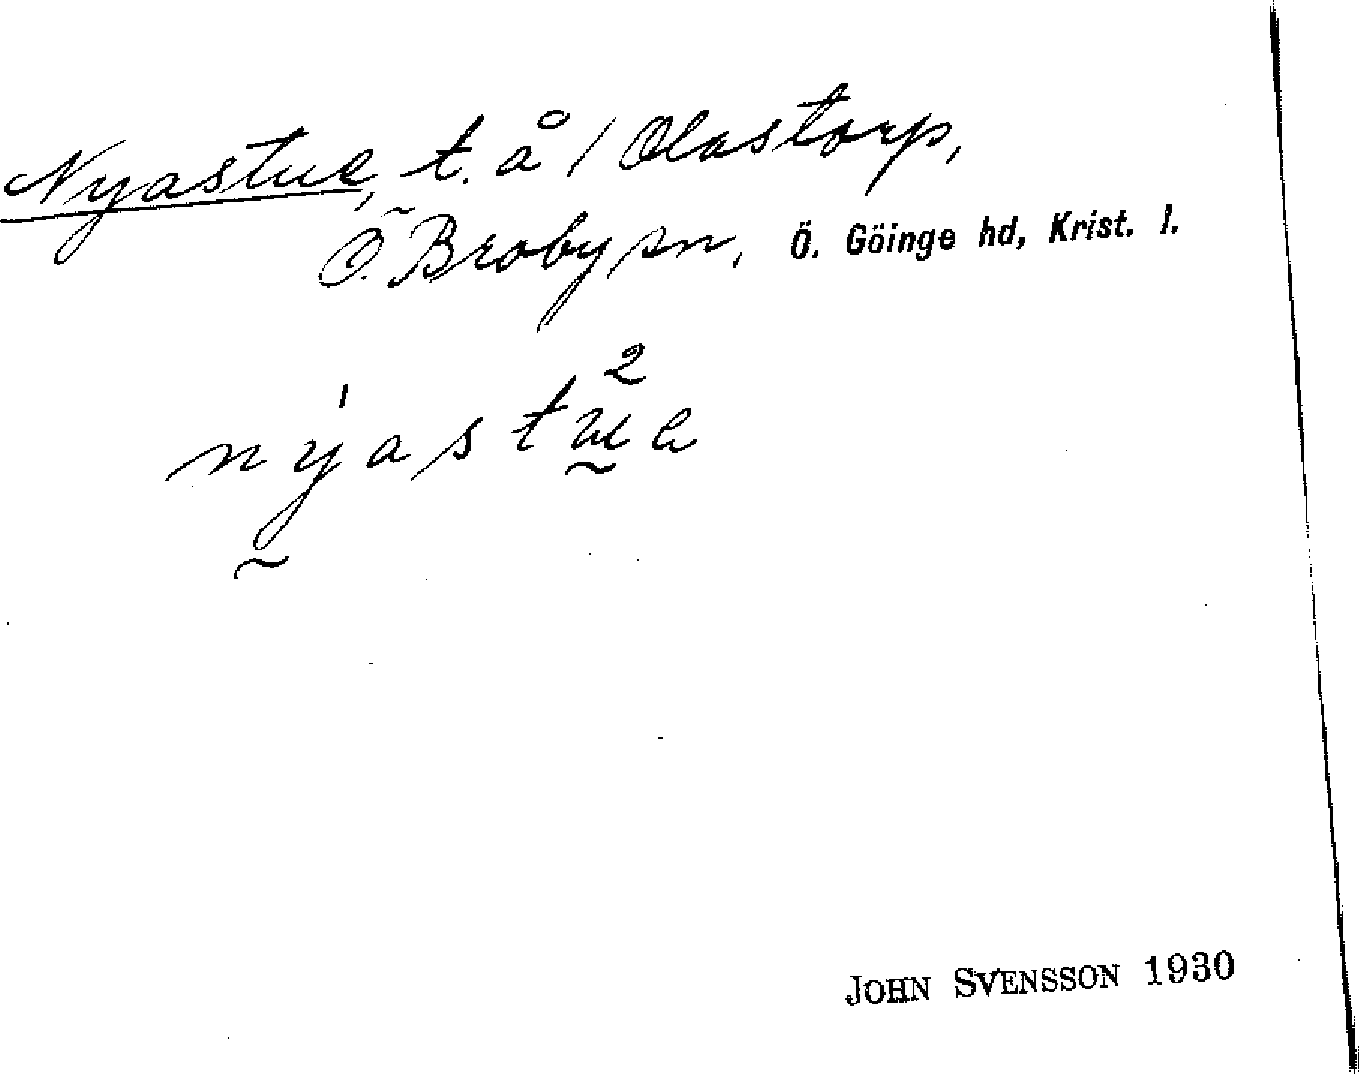 Nyastue, t. å / Olastorp,
Ö. Broby sn, Ö. Göinge hd, Krist. l.
nyastua
JOHN SVENSSON 1930